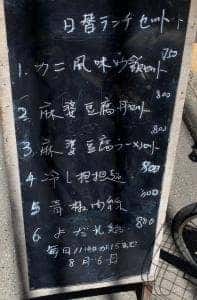 日替ランチセット
1. カニ風味炒飯セット 750
2. 麻婆豆腐丼セット 800
3. 麻婆豆腐ラーメンセット 800
4 冷し担担麺 800
5 青椒肉絲 800
6 よだれ鶏 850
毎日11:00から15まで
8月6日